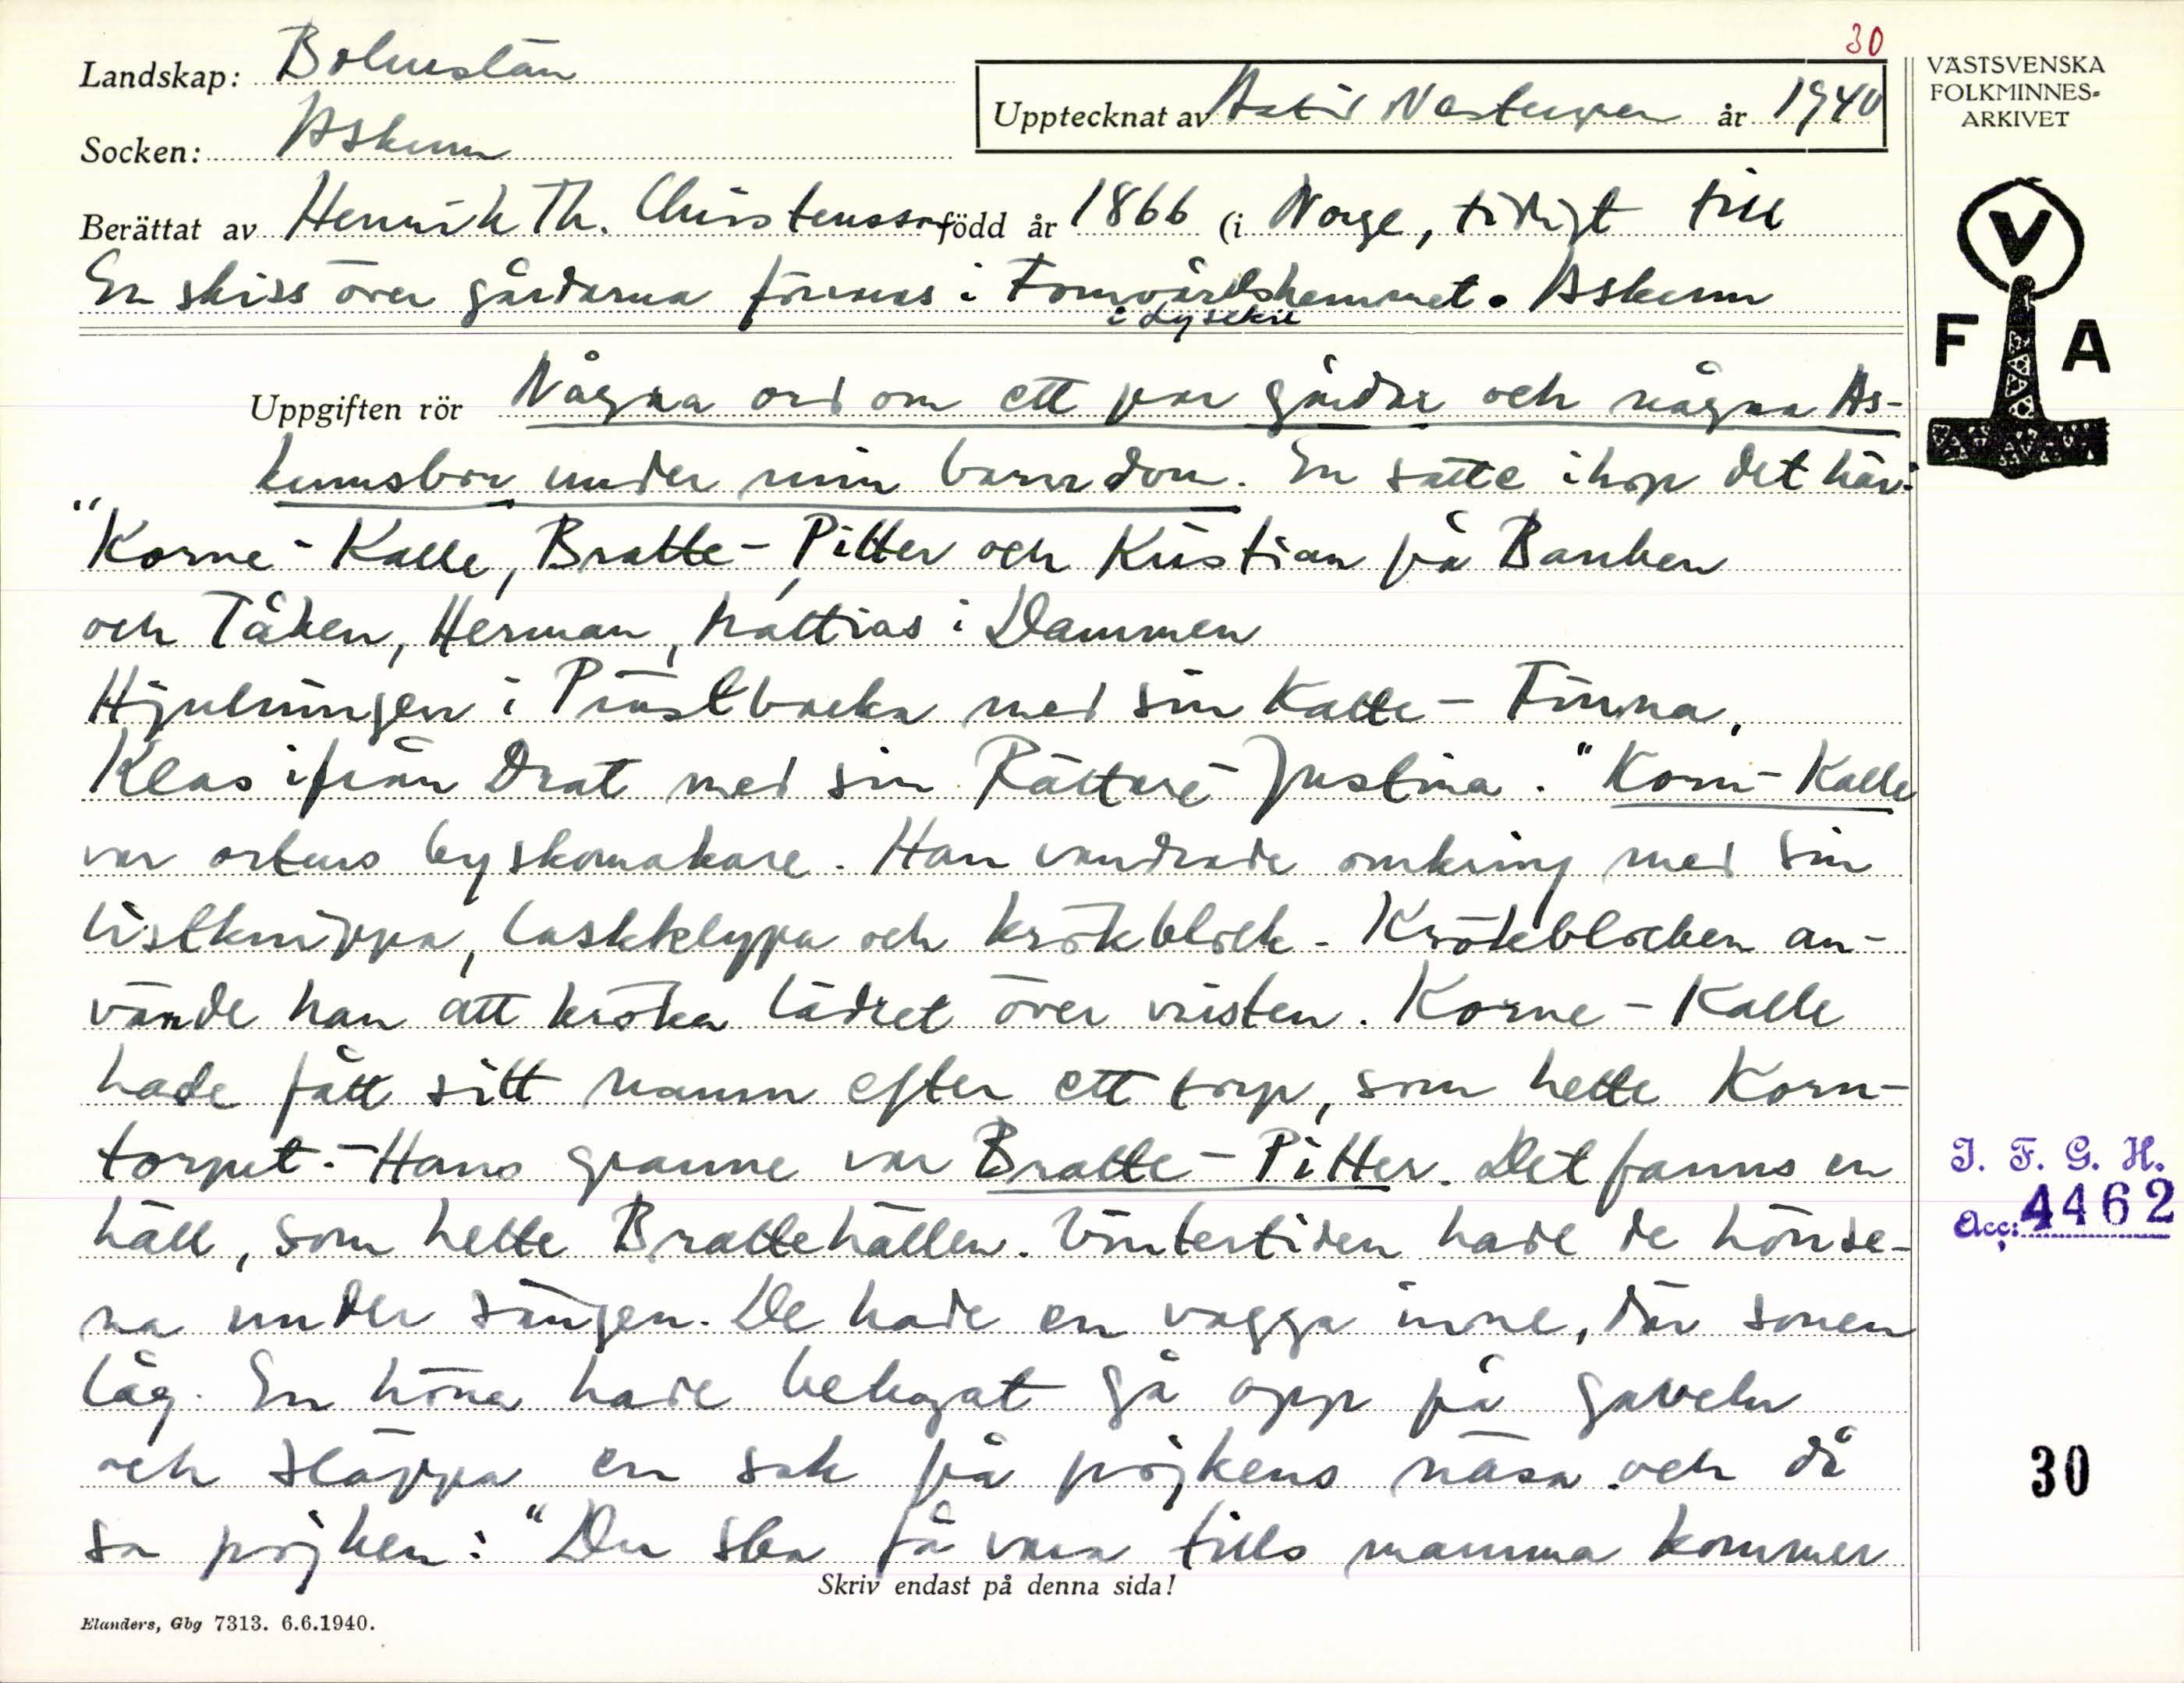 30
Landskap: Bohuslän
Upptecknat av Astrid Vestergren år 1940
Socken: Askum
Berättat av Henrik Th. Christensson född år 1866 (i Norge, tidigt till
En skiss över gårdarna finnes i Fornvårdshemmet. Askum
i Lysekil
Uppgiften rör Några ord om ett par gårdar och några As-
kumsbor under min barndom. En satte ihop det här:
"Korne-Kalle, Bratte-Pitter och Kristian på Banken
och Tåken, Herman, Mattias i Dammen
Hjulningen i Prästbacka med sin Katte-Finna,
Klas ifrån Drat med sin Rättare-Justina." Korn-Kalle
var ortens byskomakare. Han vandrade omkring med sin
listknippa, laskklypa och krökblock. Krökblocken an-
vände han att kröka lädret över vristen. Korne-Kalle
hade fått sitt namn efter ett torp, som hette Korn-
torpet. - Hans granne var Bratte-Pitter. Det fanns en
häll, som hette Brattehällen. Vintertiden hade de hönse-
na under sängen. De hade en vagga inne, där sonen
låg. En höna hade behagat gå opp på gaveln
och släppa en sak på pojkens näsa och då
sa pojken: "Du ska få vara tills mamma kommer
Skriv endast på denna sida!
Elanders, Gbg 7313. 6.6.1940.
VÄSTSVENSKA
FOLKMINNES-
ARKIVET
V
F A
I. F. G. H.
Acc: 4462
30